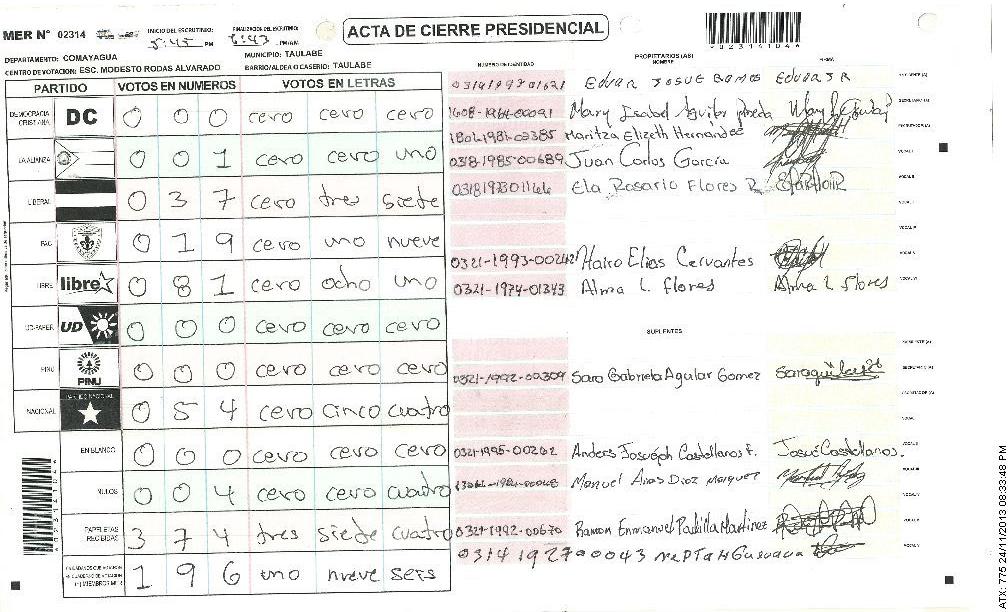 ACTA DE CIERRE PRESIDENCIAL
MER N° 02314
INICIO DEL ESCRUTINIO: 5:45 PM
FINALIZACION DEL ESCRUTINIO: 6:43 PM/AM
DEPARTAMENTO: COMAYAGUA
MUNICIPIO: TAULABE
CENTRO DE VOTACION: ESC. MODESTO RODAS ALVARADO
BARRIO/ALDEA O CASERIO: TAULABE
PARTIDO VOTOS EN NUMEROS VOTOS EN LETRAS
DEMOCRACIA CRISTIANA DC 0 0 0 cero cero cero
LA ALIANZA 0 0 1 cero cero uno
LIBERAL 0 3 7 cero tres siete
PAC 0 1 9 cero uno nueve
LIBRE libre 0 8 1 cero ocho uno
UD 0 0 0 cero cero cero
PINU PINU 0 0 0 cero cero cero
NACIONAL 0 5 4 cero cinco cuatro
EN BLANCO 0 0 0 cero cero cero
NULOS 0 0 4 cero cero cuatro
PAPELETAS RECIBIDAS 3 7 4 tres siete cuatro
1 9 6 uno nueve seis
NUMERO DE IDENTIDAD PROPIETARIOS (AS) NOMBRE FIRMA
Edvar Josue Ramos
1608-1964-00091 Mary Isabel Aguilar
1801-1981-02385 Maritza Elizeth Hernandez
0318-1985-00689 Juan Carlos García
Ela Rosario Flores R
Elias Cervantes
0321-1974-01343 Alma L. Flores Alma L Flores
SUPLENTES
0321-1992-00309 Sara Gabriela Aguilar Gomez
0321-1995-00202 Anders Josueph Castellanos F. Josué Castellanos.
Manuel Diaz Marquez
0321-1992-00670 Ramon Enmanuel Padilla Martinez
ATX: 775 24/11/2013 08:33:48 PM